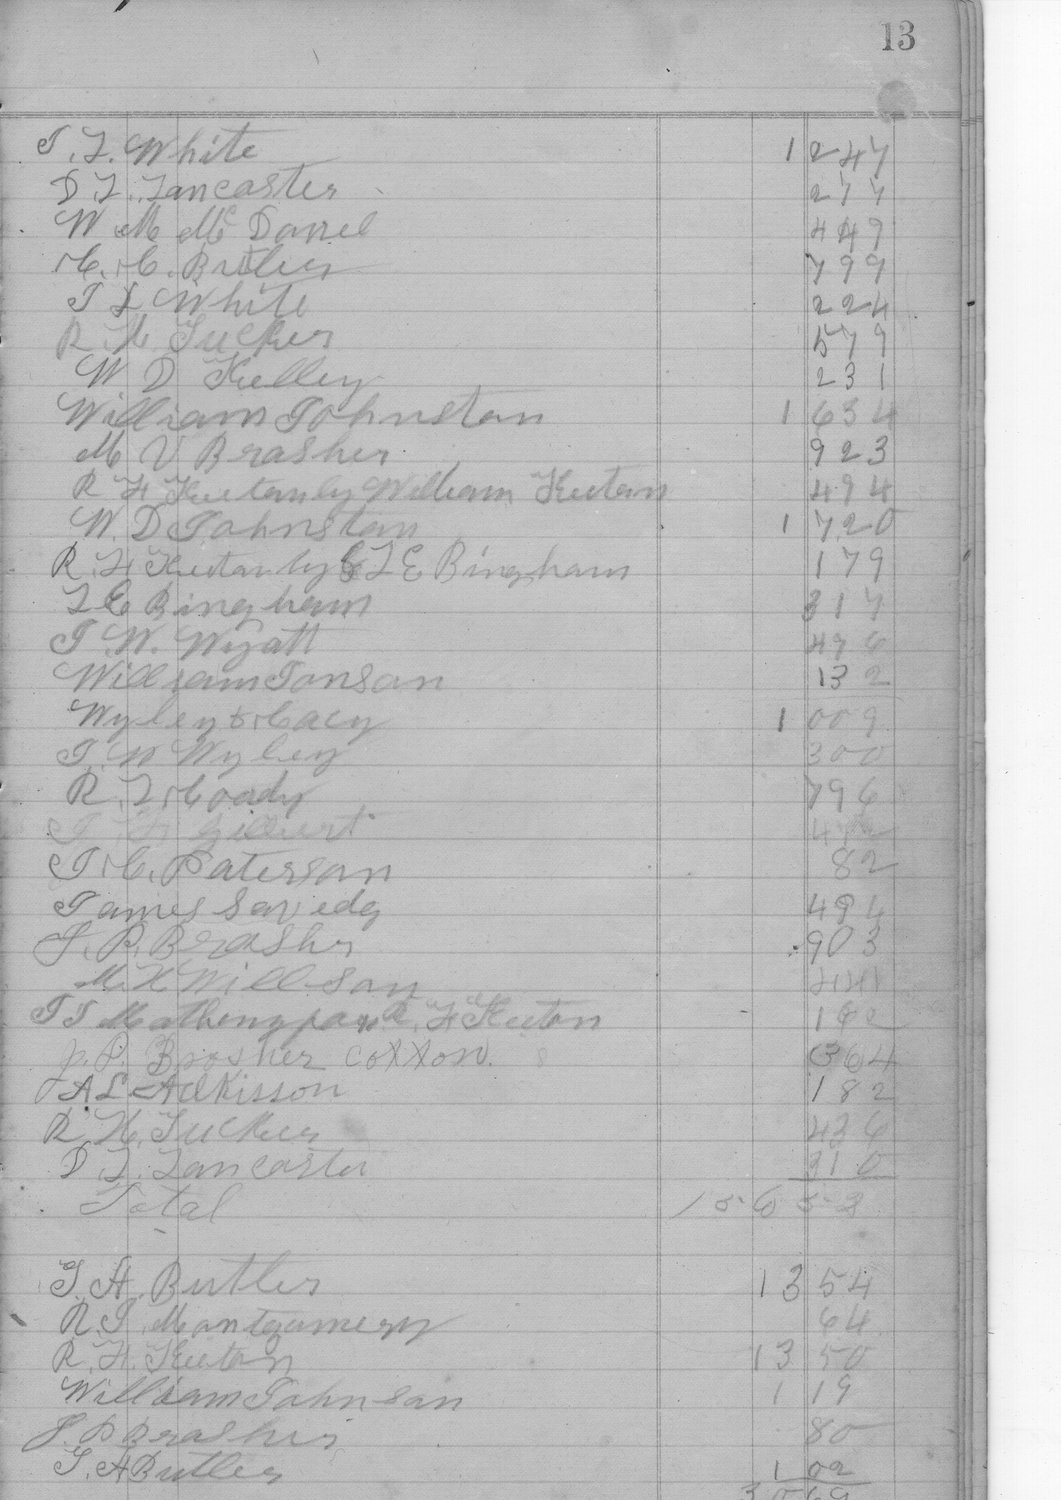 13
T. L. White 1 247
D. L. Lancaster 277
W M Mc Daniel 449
H. H. Butler 799
T L White 224
R. H. Tucker 579
W D Kelley 231
William Johnston 1 634
M V Brasher 923
R H Keetan by William Keetan 494
W. D Johnston 1 720
R. H Keetan by L E Bingham 179
L E Bingham 317
T. W. Wyatt 496
William Jonson 132
Wyley & Cacy 1 009
T. W Wyley 300
R. L. Coady 796
T. H Gilbert
T. C. Paterson 82
James Savedg 494
J. P. Brasher 903
M. H Willson
T T Matheny R. H Keeton 192
J. P. Brosher coxxon. 364
A L Adkisson 182
R. H. Tucker 436
D. L. Lancaster 310
Total 15653
G. A. Butler 13 54
R. T. Montgomery 64
R. H. Keeton 13 50
William Johnson 1 19
J. P Brasher 80
G. A Butler 1 02
30 69